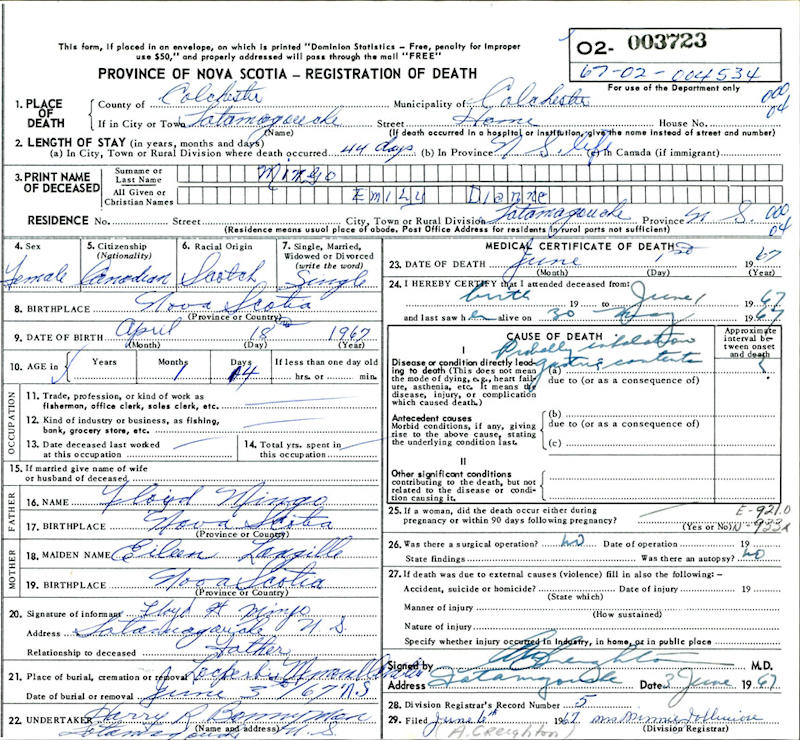 This form, if placed in an envelope, on which is printed "Dominion Statistics – Free, penalty for improper
use $50," and properly addressed will pass through the mail "FREE"
O2- 003723
67-02-004534
For use of the Department only
PROVINCE OF NOVA SCOTIA – REGISTRATION OF DEATH
1. PLACE OF DEATH
County of Colchester Municipality of Colchester 000
If in City or Town Tatamagouche Street Home House No. 04
(Name) (If death occurred in a hospital or institution, give the name instead of street and number)
2. LENGTH OF STAY (in years, months and days)
(a) In City, Town or Rural Division where death occurred 44 days (b) In Province N S life in Canada (if immigrant)
3. PRINT NAME OF DECEASED
Surname or Last Name Mingo
All Given or Christian Names Emily Dianne
RESIDENCE No. Street City, Town or Rural Division Tatamagouche Province N S. 000 04
(Residence means usual place of abode. Post Office Address for residents in rural parts not sufficient)
4. Sex Female
5. Citizenship (Nationality) Canadian
6. Racial Origin Scotch
7. Single, Married, Widowed or Divorced (write the word) Single
8. BIRTHPLACE Nova Scotia
(Province or Country)
9. DATE OF BIRTH April 18 1967
(Month) (Day) (Year)
10. AGE in Years Months 1 Days 14 If less than one day old
hrs. or min.
OCCUPATION
11. Trade, profession, or kind of work as
fisherman, office clerk, sales clerk, etc.
12. Kind of industry or business, as fishing,
bank, grocery store, etc.
13. Date deceased last worked
at this occupation
14. Total yrs. spent in
this occupation
15. If married give name of wife
or husband of deceased
FATHER
16. NAME Floyd Mingo
17. BIRTHPLACE Nova Scotia
(Province or Country)
MOTHER
18. MAIDEN NAME Eileen Langille
19. BIRTHPLACE Nova Scotia
(Province or Country)
20. Signature of informant Floyd H Mingo
Address Tatamagouche N S.
Relationship to deceased Father
21. Place of burial, cremation or removal
Date of burial or removal June 3 /67 N.S
22. UNDERTAKER Harry R Bannerman
(Name and address) Tatamagouche N. S.
MEDICAL CERTIFICATE OF DEATH
23. DATE OF DEATH June 1 1967
(Month) (Day) (Year)
24. I HEREBY CERTIFY that I attended deceased from:
birth 19 to June 1 1967
and last saw her alive on 30 May 1967
CAUSE OF DEATH
Approximate interval between onset and death
I
Disease or condition directly leading to death (This does not mean the mode of dying, e.g., heart failure, asthenia, etc. It means the disease, injury, or complication which caused death.)
(a) Probably inhalation gastric contents ?
due to (or as a consequence of)
Antecedent causes
Morbid conditions, if any, giving rise to the above cause, stating the underlying condition last.
(b)
due to (or as a consequence of)
(c)
II
Other significant conditions
contributing to the death, but not related to the disease or condition causing it.
25. If a woman, did the death occur either during
pregnancy or within 90 days following pregnancy?
(Yes or No)
E-921.0
N-933x
26. Was there a surgical operation? no Date of operation 19
State findings Was there an autopsy? no
27. If death was due to external causes (violence) fill in also the following: –
Accident, suicide or homicide? Date of injury 19
(State which)
Manner of injury
(How sustained)
Nature of injury
Specify whether injury occurred in industry, in home, or in public place
Signed by A Creighton M.D.
Address Tatamagouche Date 3 June 1967
28. Division Registrar's Record Number 5
29. Filed June 6th 1967 Mrs Minnie
(A. Creighton) (Division Registrar)